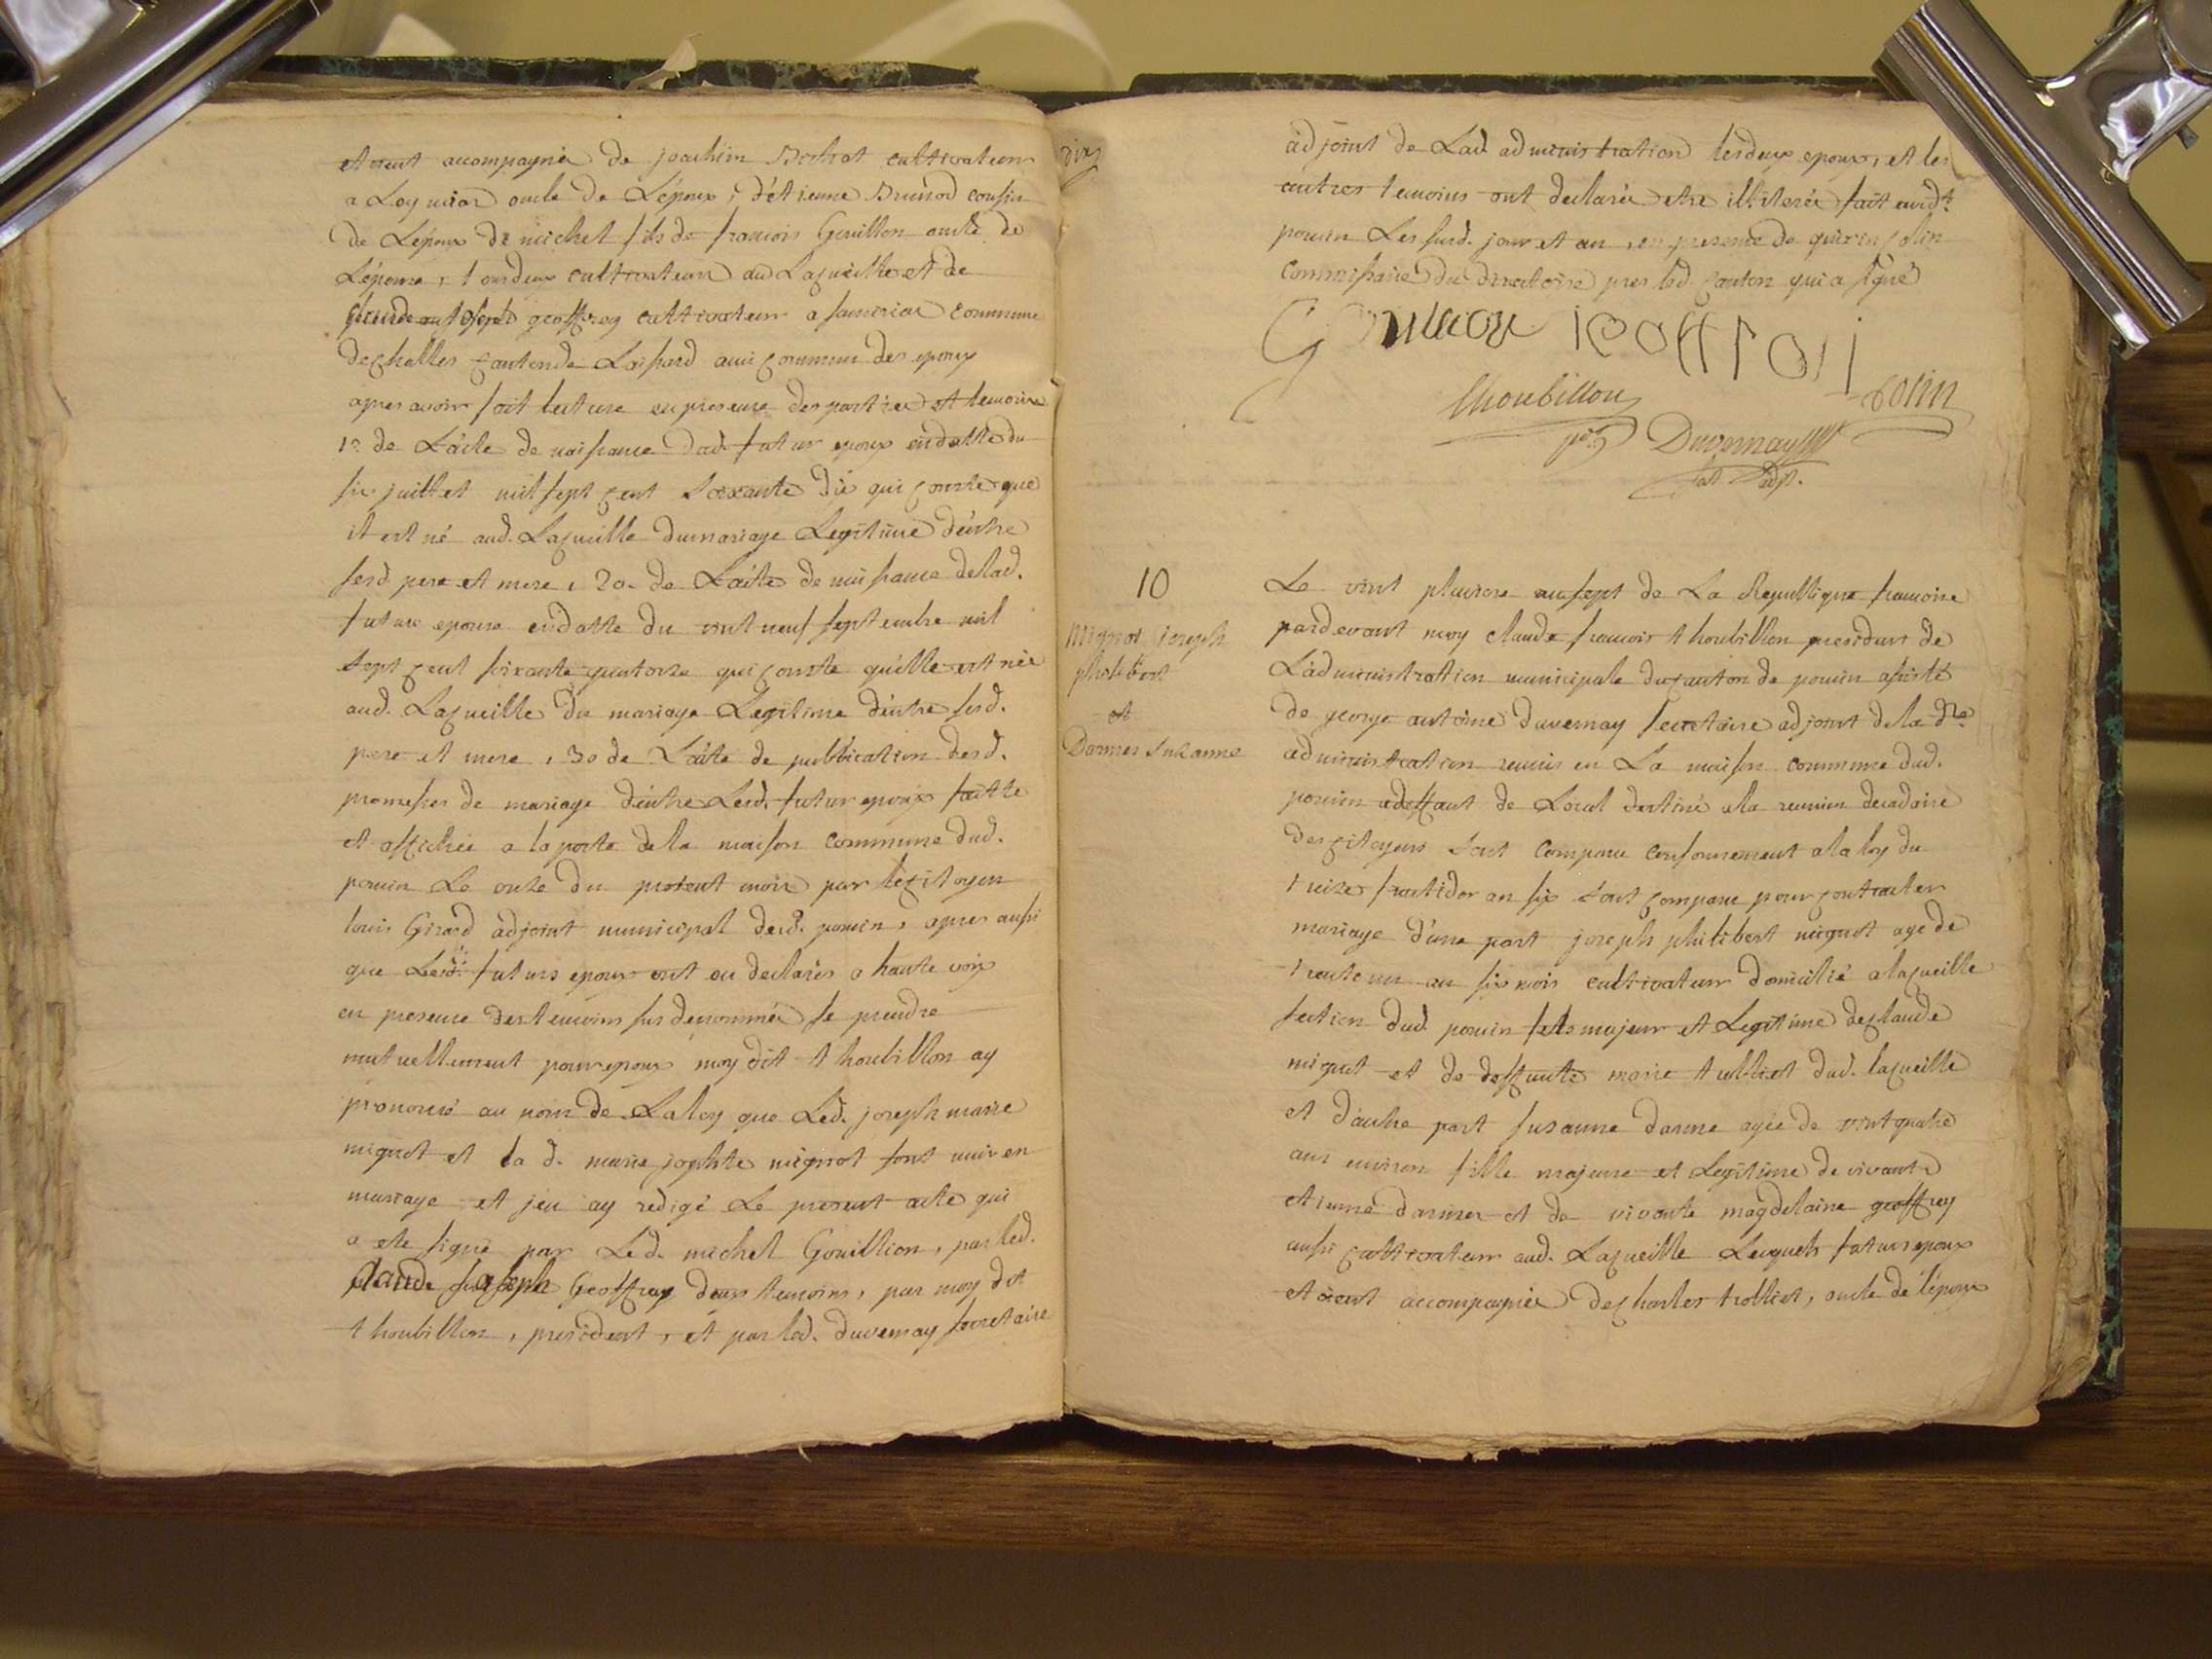 etoient accompagniée de joachim Bertrot cultivateur
a Leymiat oncle de L'epoux, d'étienne Brunod cousin
de L'epoux de michel fils de francois Gouillon oncle de
L'epouse, tourdeux cultivateur aud Lacueille et de
Claude joseph geoffrey cultivateur a commune
de challes canton de aussi commun des epoux
apres avoir fait lecture en presence des parties et temoins
1o. de L'acte de naissance dud. futur epoux en datte du
six juillet mil sept cent soixante dix qui conste que
il est né aud. Lacueille du mariage Legitime d'entre
sesd pere et mere, 2o. de L'acte de naissance de lad.
future epouse en datte du vint neuf septembre mil
sept cent soixante quatorze qui conste qu'elle est née
aud. Lacueille du mariage Legitime d'entre sesd.
pere et mere, 3o de L'acte de publication desd.
promesses de mariage d'entre Lesd. futur epoux faitte
et affichée a la porte de la maison commune dud.
poncin Le onze du present mois par le citoyen
louis Girard adjoint municipal dud. poncin, apres aussi
que Lesd. futurs epoux ont eu declarés a haute voix
en presence des temoins sus denommés se prendre
mutuellement pour epoux moy dit thoubillon ay
prononcé au nom de La loy que Led. joseph marie
mignot et la d. marie josephte mignot sont unis en
mariage et j'en ay redigé Le present acte qui
a ete signé par Led. michel Gouillion, par led.
claude joseph Geoffray deux temoins, par moy dit
thoubillon, president, et par led. duvernay secretaire
dix
adjoint de Lad administration lesdeux epoux, et les
autres temoins ont declarés etre illiterés fait aud.
poncin Les susd. jour et an, en presence de quirin colin
commissaire du directoire pres led. canton qui a signé
Gouillon ieoffroi
thoubillon colin
pt Duvernay
adjt.
10
mignot joseph
philibert
et
Darmes Suzanne
Le vint pluviose an sept de La Republique francoise
pardevant moy claude francois thoubillon president de
L'administration municipale du canton de poncin assisté
de george antoine duvernay secretaire adjoint de la dte
administration reunis en La maison commune dud.
poncin adeffaut de Local destiné ala reunion decadaire
des citoyens sont comparu conformement ala loy du
treize fructidor an six sont comparu pour contracter
mariage d'une part joseph philibert mignot age de
trente un an six mois cultivateur domicilié a lacueille
section dud. poncin fils majeur et Legitime de claude
mignot et de deffunte marie tulliet dud. lacueille
et d'autre part susanne darme agée de vint quatre
ans environ fille majeure et Legitime de vivant
etienne darmes et de vivante magdelaine geoffrey
aussi cultivateur aud. Lacueille Lesquels futurs epoux
etoient accompagnés de charles trolliet, oncle de l'epoux